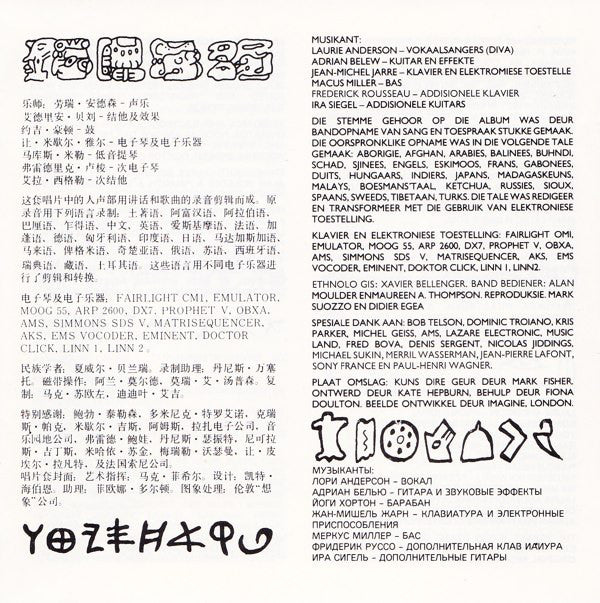 乐师: 劳瑞·安德森-声乐
艾德里安·贝刘-结他及效果
约吉·豪顿-鼓
让·米歇尔·雅尔-电子琴及电子乐器
马库斯·米勒-低音提琴
弗雷德里克·卢梭-次电子琴
艾拉·西格勒-次结他
这套唱片中的人声部用讲话和歌曲的录音剪辑而成。原
录音用下列语言录制: 土著语、阿富汗语、阿拉伯语、
巴厘语、乍得语、中文、英语、爱斯基摩语、法语、加
蓬语、德语、匈牙利语、印度语、日语、马达加斯加语、
马来语、俾格米语、奇楚亚语、俄语、苏语、西班牙语、
瑞典语、藏语、土耳其语。这些语言用不同电子乐器进
行了剪辑和转换。
电子琴及电子乐器: FAIRLIGHT CM1, EMULATOR,
MOOG 55, ARP 2600, DX7, PROPHET V, OBXA,
AMS, SIMMONS SDS V, MATRISEQUENCER,
AKS, EMS VOCODER, EMINENT, DOCTOR
CLICK, LINN 1, LINN 2。
民族学者: 夏威尔·贝兰瑞。录制助理: 丹尼斯·万塞
托。磁带操作: 阿兰·莫尔德, 莫瑞·艾·汤普森。复
制: 马克·苏欧左, 迪迪叶·艾吉。
特别感谢: 鲍勃·泰勒森, 多米尼克·特罗艾诺, 克瑞
斯·帕克, 米歇尔·吉斯, 阿姆斯, 拉扎电子公司, 音
乐园地公司, 弗雷德·鲍娃, 丹尼斯·瑟振特, 尼可拉
斯·吉丁斯, 米哈依·苏金, 梅瑞勒·沃瑟曼, 让·皮
埃尔·拉凡特, 及法国索尼公司。
唱片套封面: 艺术指挥: 马克·菲希尔。设计: 凯特·
海伯恩。助理: 菲欧娜·多尔顿。图象处理: 伦敦“想
象”公司。
MUSIKANT:
LAURIE ANDERSON – VOKAALSANGERS (DIVA)
ADRIAN BELEW – KUITAR EN EFFEKTE
JEAN-MICHEL JARRE – KLAVIER EN ELEKTROMIESE TOESTELLE
MACUS MILLER – BAS
FREDERICK ROUSSEAU – ADDISIONELE KLAVIER
IRA SIEGEL – ADDISIONELE KUITARS
DIE STEMME GEHOOR OP DIE ALBUM WAS DEUR
BANDOPNAME VAN SANG EN TOESPRAAK STUKKE GEMAAK.
DIE OORSPRONKLIKE OPNAME WAS IN DIE VOLGENDE TALE
GEMAAK: ABORIGIE, AFGHAN, ARABIES, BALINEES, BUHNDI,
SCHAD, SJINEES, ENGELS, ESKIMOOS, FRANS, GABONEES,
DUITS, HUNGAARS, INDIERS, JAPANS, MADAGASKEUNS,
MALAYS, BOESMANS'TAAL, KETCHUA, RUSSIES, SIOUX,
SPAANS, SWEEDS, TIBETAAN, TURKS. DIE TALE WAS REDIGEER
EN TRANSFORMEER MET DIE GEBRUIK VAN ELEKTRONIESE
TOESTELLING.
KLAVIER EN ELEKTRONIESE TOESTELLING: FAIRLIGHT CMI,
EMULATOR, MOOG 55, ARP 2600, DX7, PROPHET V, OBXA,
AMS, SIMMONS SDS V, MATRISEQUENCER, AKS, EMS
VOCODER, EMINENT, DOKTOR CLICK, LINN 1, LINN2.
ETHNOLO GIS: XAVIER BELLENGER. BAND BEDIENER: ALAN
MOULDER ENMAUREEN A. THOMPSON. REPRODUKSIE. MARK
SUOZZO EN DIDIER EGEA
SPESIALE DANK AAN: BOB TELSON, DOMINIC TROIANO, KRIS
PARKER, MICHEL GEISS, AMS, LAZARE ELECTRONIC, MUSIC
LAND, FRED BOVA, DENIS SERGENT, NICOLAS JIDDINGS,
MICHAEL SUKIN, MERRIL WASSERMAN, JEAN-PIERRE LAFONT,
SONY FRANCE EN PAUL-HENRI WAGNER.
PLAAT OMSLAG: KUNS DIRE GEUR DEUR MARK FISHER.
ONTWERD DEUR KATE HEPBURN, BEHULP DEUR FIONA
DOULTON. BEELDE ONTWIKKEL DEUR IMAGINE, LONDON.
МУЗЫКАНТЫ:
ЛОРИ АНДЕРСОН – ВОКАЛ
АДРИАН БЕЛЬЮ – ГИТАРА И ЗВУКОВЫЕ ЭФФЕКТЫ
ЙОГИ ХОРТОН – БАРАБАН
ЖАН-МИШЕЛЬ ЖАРН – КЛАВИАТУРА И ЭЛЕКТРОННЫЕ
ПРИСПОСОБЛЕНИЯ
МЕРКУС МИЛЛЕР – БАС
ФРИДЕРИК РУССО – ДОПОЛНИТЕЛЬНАЯ КЛАВ ИАТУРА
ИРА СИГЕЛЬ – ДОПОЛНИТЕЛЬНЫЕ ГИТАРЫ